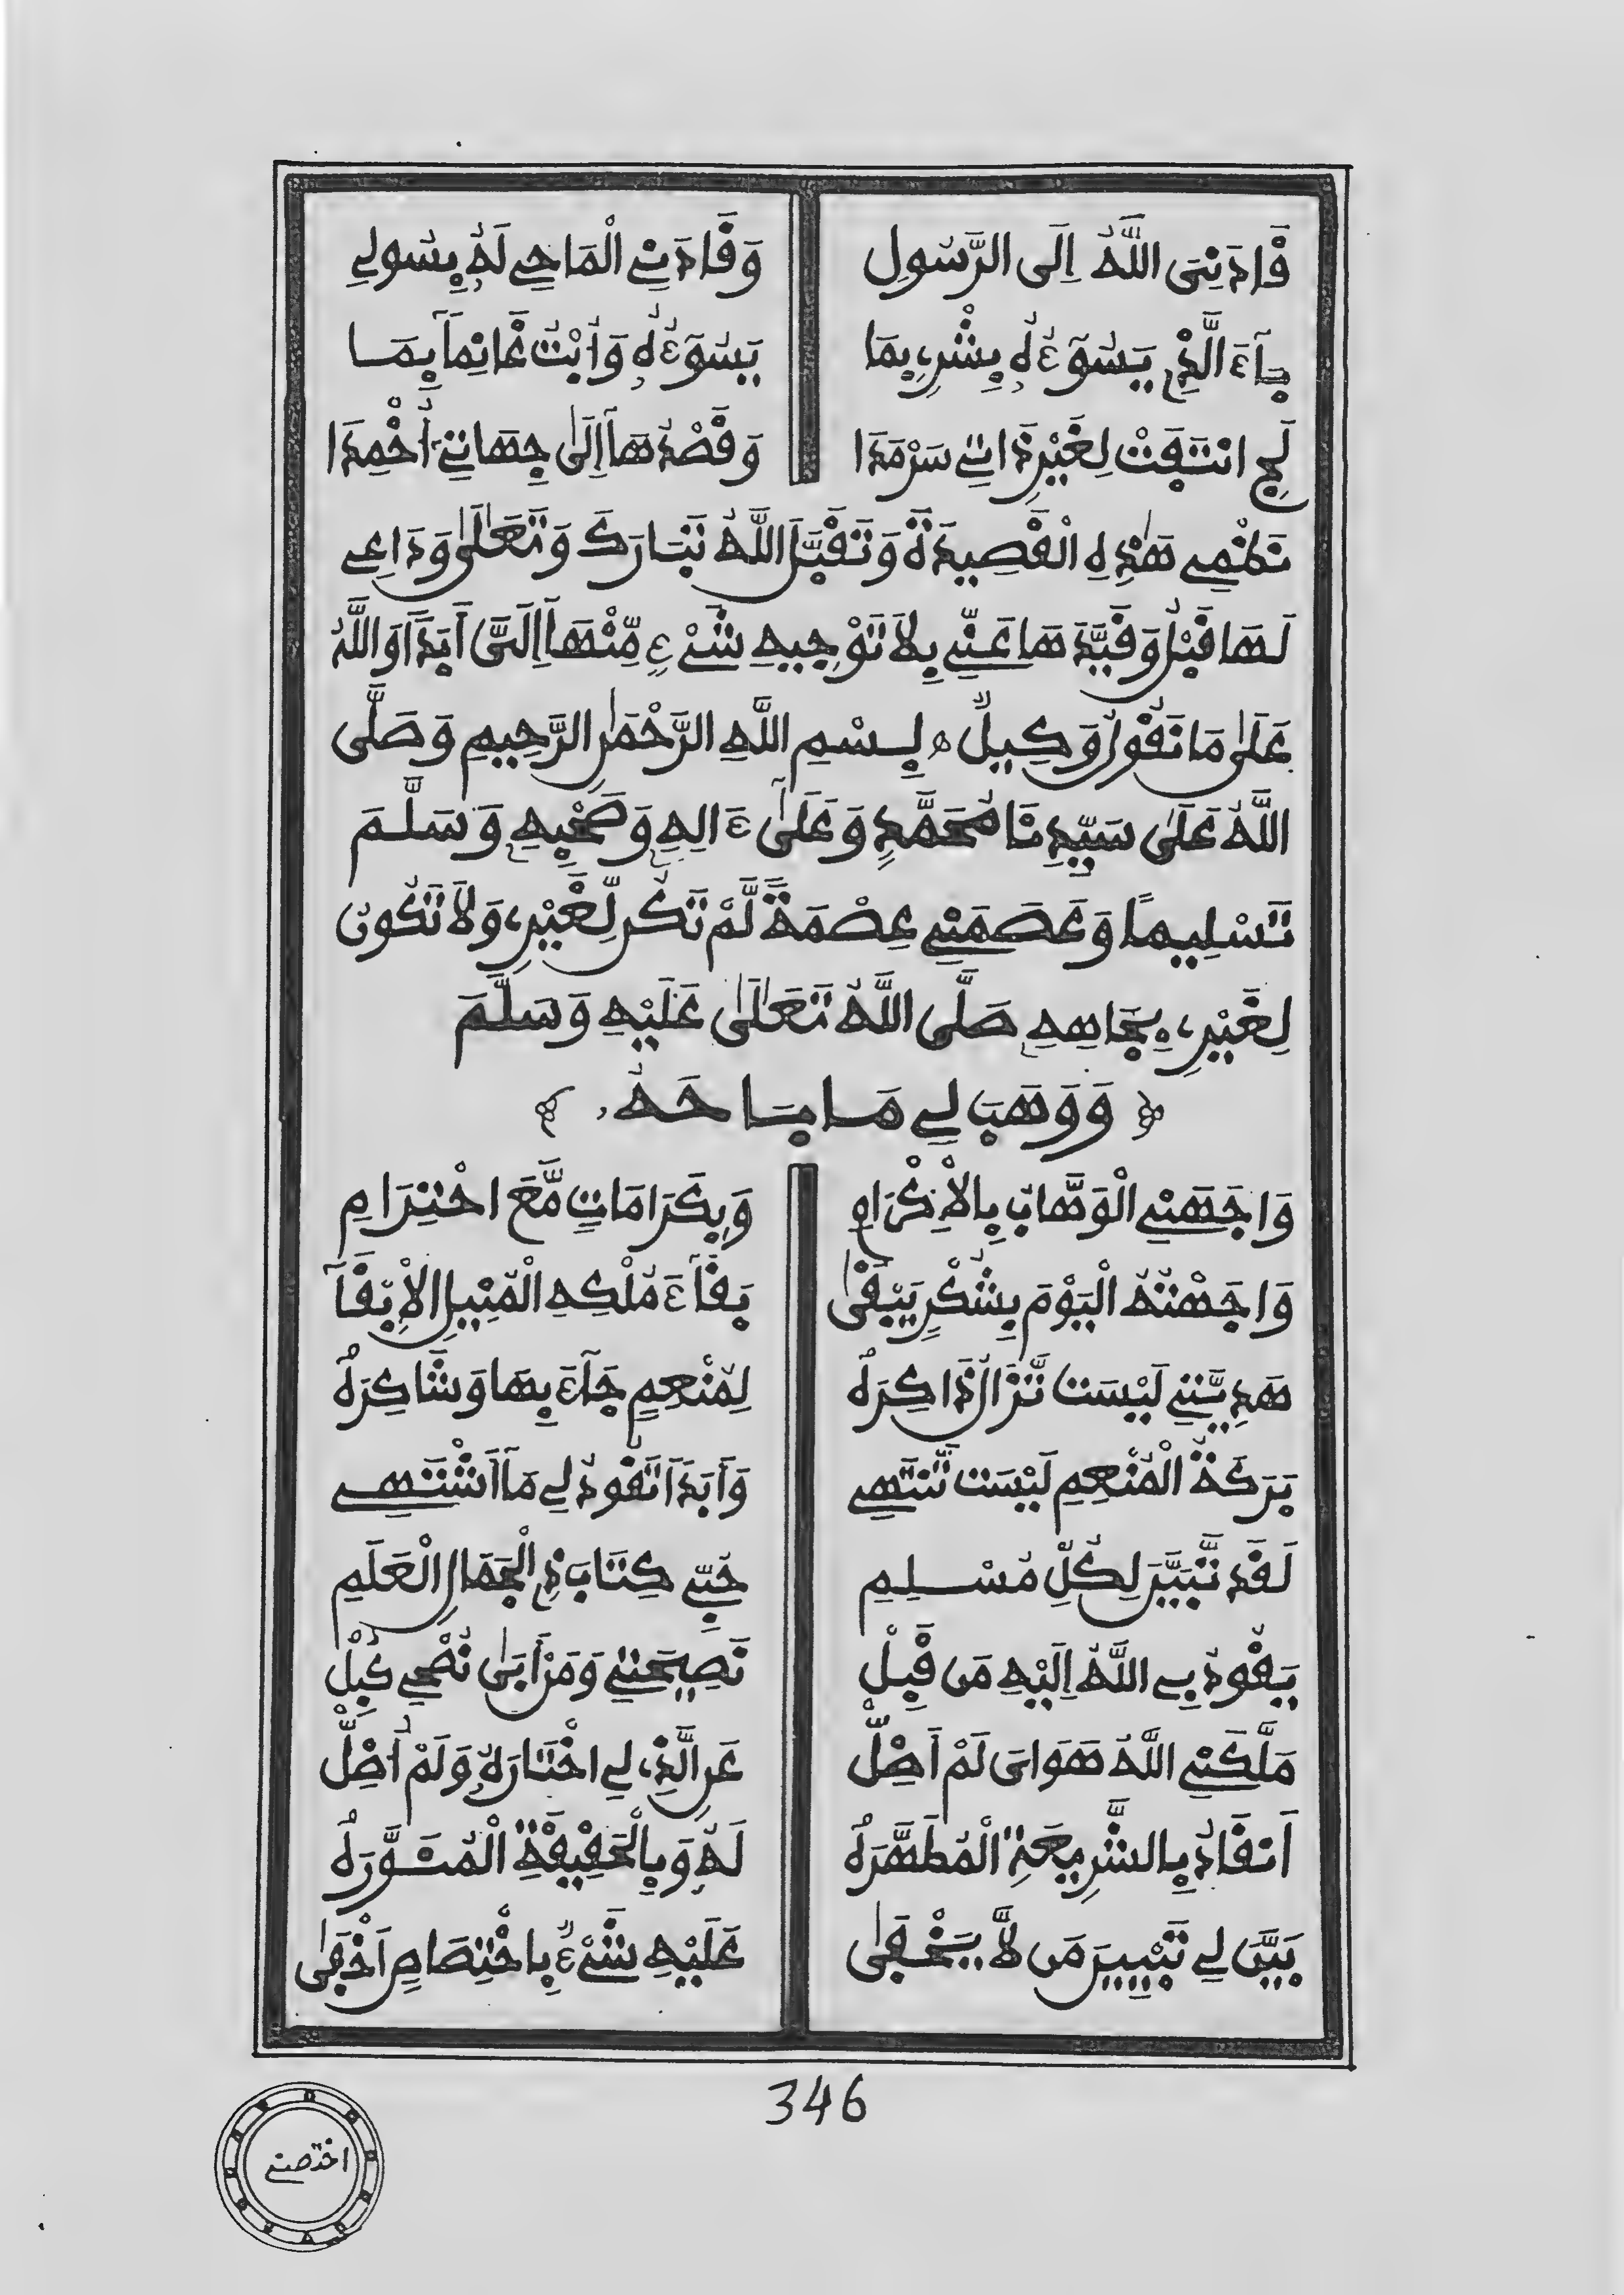 قَادَنِىَ اللَّهُ إِلَى الرَّسُولِ وَقَادَنِي الْمَاحِي لَهُ بِسُولِي
بَآءَ الَّذِي يَسُوءُهُ بِشْرِي بِمَا يَسُوءُهُ وَأُبْتُ غَانِماً بِمَا
لِي انْتَفَتْ لِغَيْرِ ذَاتِي سَرْمَدَا وَقَصْدُهَا إِلَىٰ جِهَاتِي أُخْمِدَا
نَظْمِي هَٰذِهِ الْقَصِيدَةَ وَتَقَبَّلَ اللَّهُ تَبَارَكَ وَتَعَالَىٰ وَدَاعِي
لَهَا قَبْلُ وَقَيَّدَهَا عَنِّي بِلَا تَوْجِيهِ شَيْءٍ مِّنْهَا إِلَىَّ أَبَدًا وَاللَّهُ
عَلَىٰ مَا نَقُولُ وَكِيلٌ ه بِسْمِ اللَّهِ الرَّحْمَٰنِ الرَّحِيمِ وَصَلَّى
اللَّهُ عَلَىٰ سَيِّدِنَا مُحَمَّدٍ وَعَلَىٰ ءَالِهِ وَصَحْبِهِ وَسَلَّمَ
تَسْلِيمًا وَعَصَمَنِي عِصْمَةً لَّمْ تَكُن لِّغَيْرِي وَلَا تَكُونُ
لِغَيْرِي بِجَاهِهِ صَلَّى اللَّهُ تَعَالَىٰ عَلَيْهِ وَسَلَّمَ
وَوَهَبَ لِي مَا بَاحَهُ
وَاجَهَنِي الْوَهَّابُ بِالْإِكْرَامِ وَبِكَرَامَاتٍ مَّعَ احْتِرَامِ
وَاجَهْتُهُ الْيَوْمَ بِشُكْرٍ يَبْقَىٰ بَقَآءَ مُلْكِهِ الْمُنِيلِ الْإِبْقَآ
هَدِيَّتِي لَيْسَتْ تَزَالُ ذَاكِرَهْ لِمُنْعِمٍ جَآءَ بِهَا وَشَاكِرَهْ
بَرَكَةُ الْمُنْعِمِ لَيْسَتْ تَنْتَهِي وَأَبَدًا تَقُودُ لِي مَا أَشْتَهِي
لَقَدْ تَّبَيَّنَ لِكُلِّ مُسْلِمِ حُبِّي كِتَابَ ذِي الْجَمَالِ الْعَلَمِ
يَقُودُ بِي اللَّهُ إِلَيْهِ مَن قَبِلْ نَصِيحَتِي وَمَنْ أَبَىٰ نُصْحِي كُبِلْ
مَلَّكَنِي اللَّهُ هَوَاىَ لَمْ أَضِلّْ عَنِ الَّذِي لِي اخْتَارَهُ وَلَمْ أُضِلّْ
أَنْقَادُ بِالشَّرِيعَةِ الْمُطَهَّرَهْ لَهُ وَبِالْحَقِيقَةِ الْمُنَوَّرَهْ
بَيَّنَ لِي تَبْيِينَ مَن لَّا يَخْفَىٰ عَلَيْهِ شَيْءٌ بِاخْتِصَاصٍ أَخْفَىٰ
346
اختصني